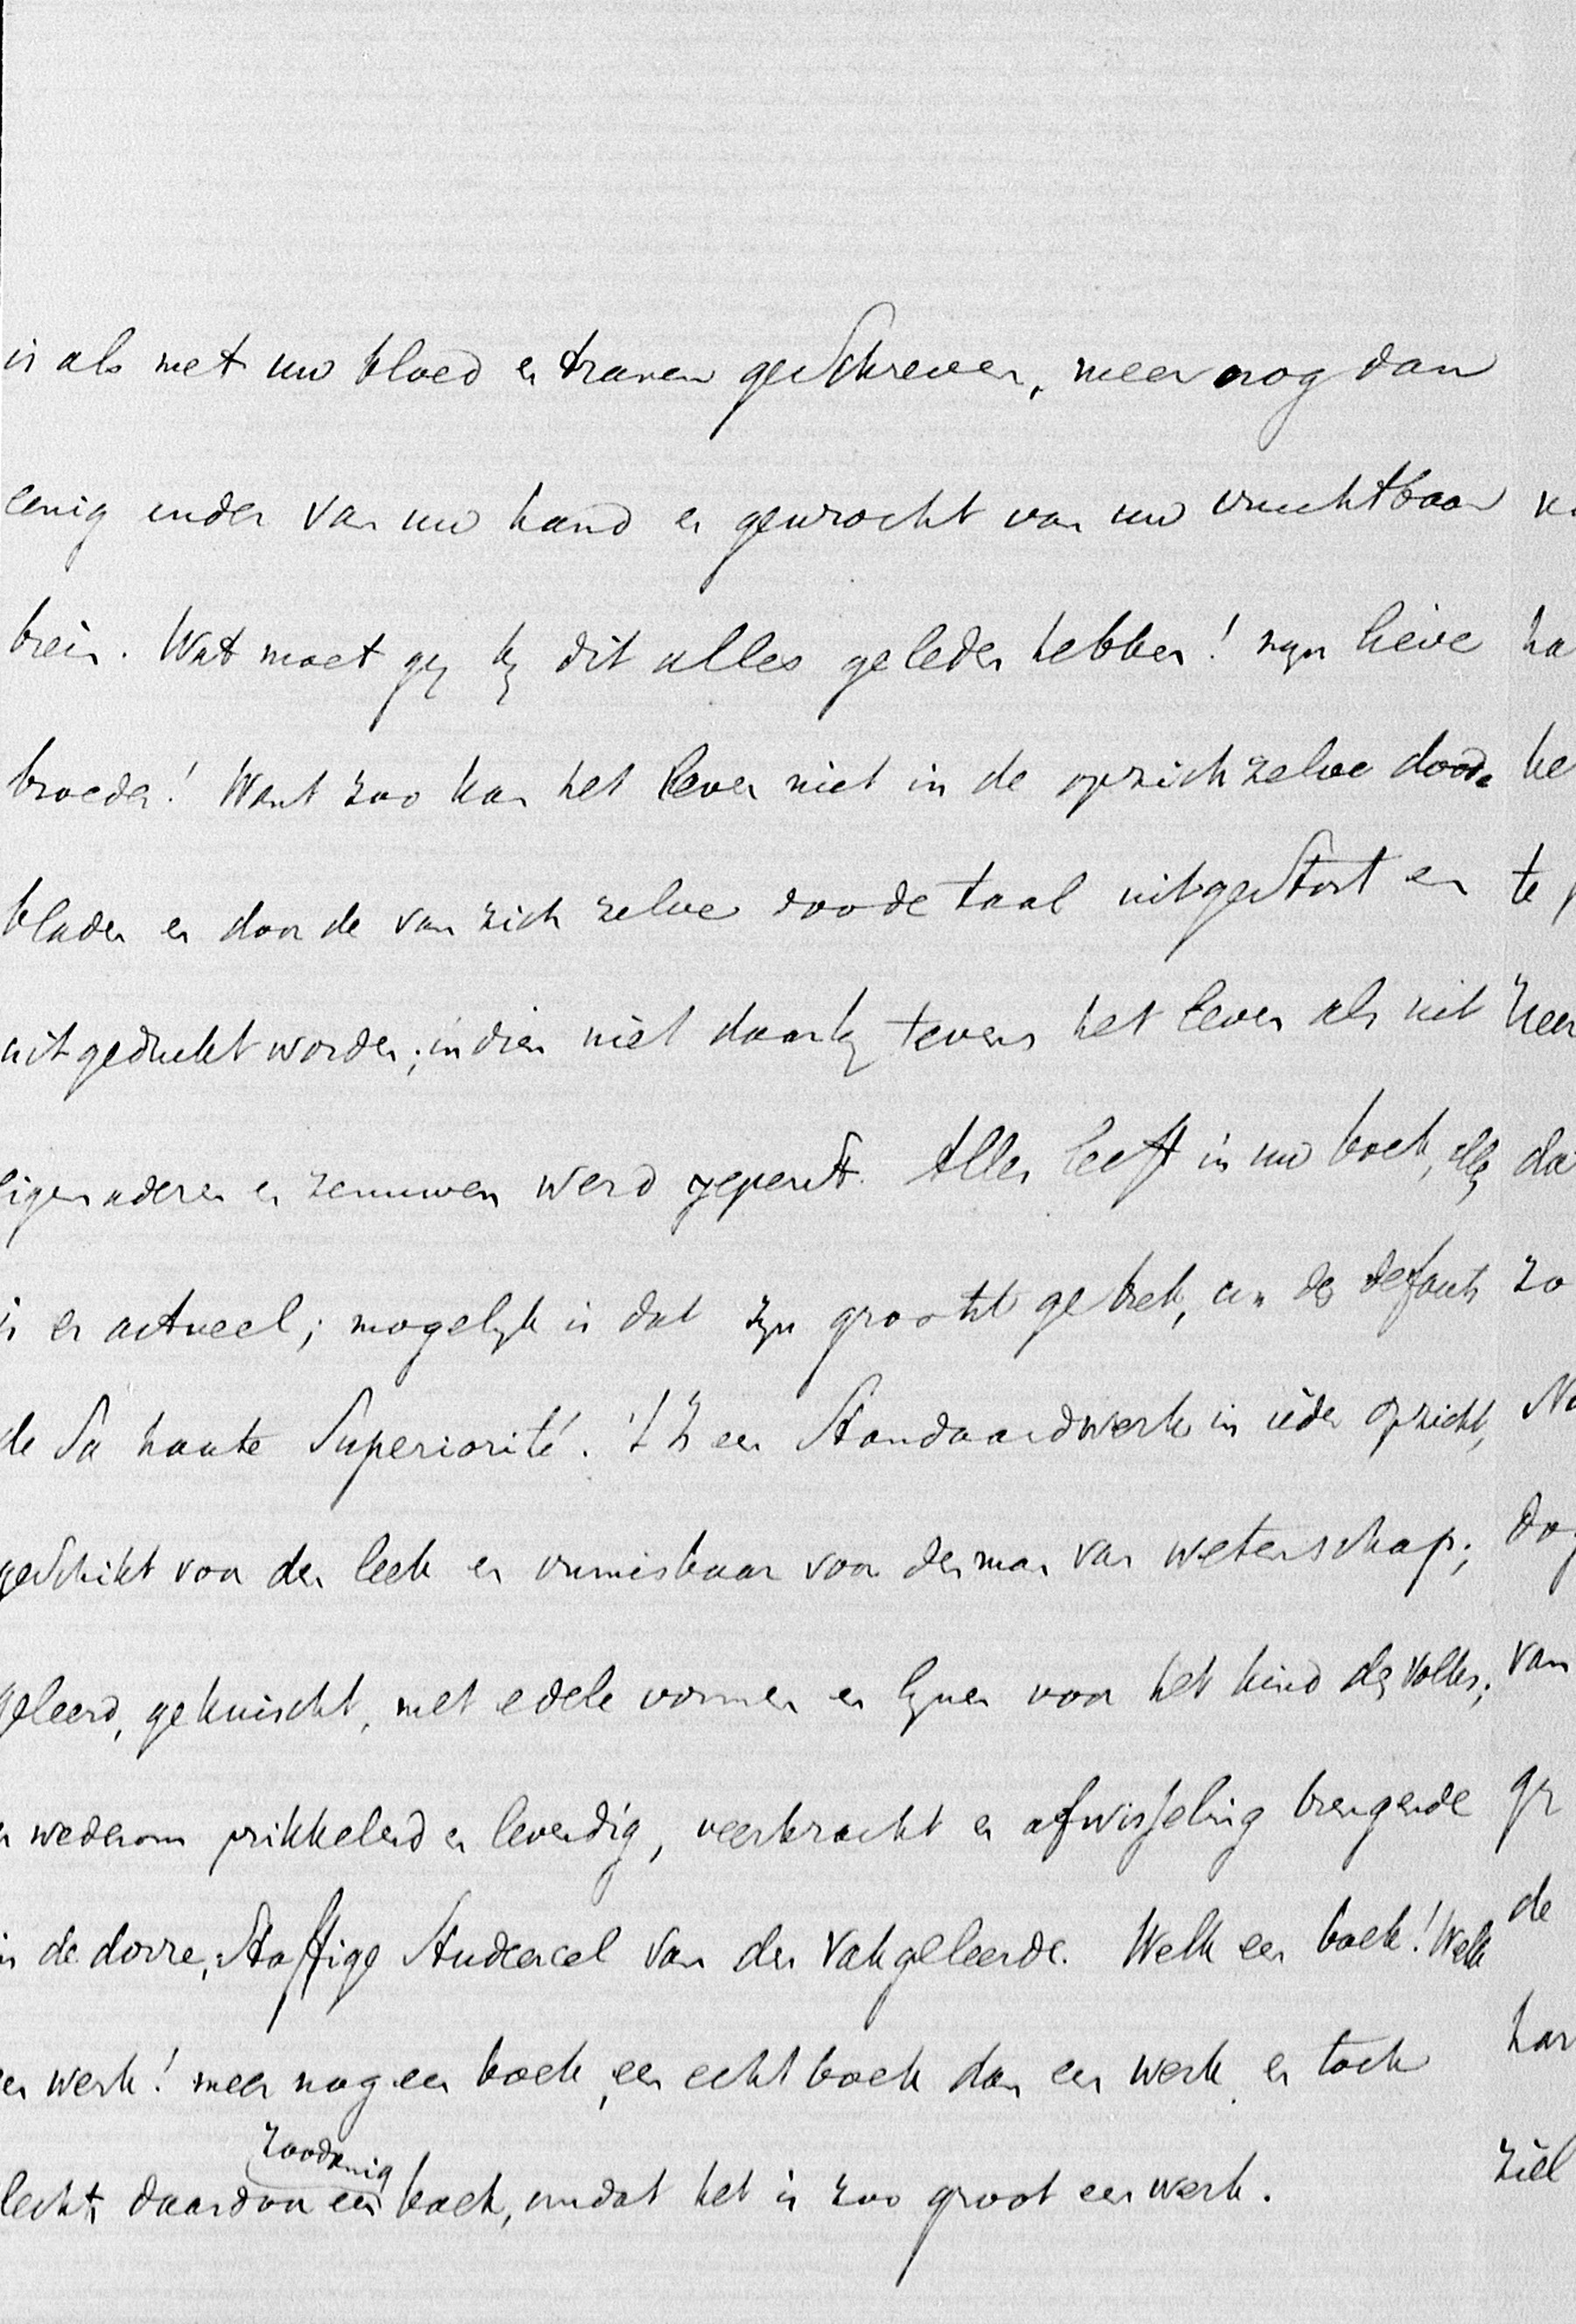 is als met uw bloed en tranen geschreven, meer nog dan
eenig ander van uw hand en gewrocht van uw vruchtbaar
brein. Wat moet gij bij dit alles geleden hebben! mijn lieve
broeder! Want zoo kan het leven niet in de opzichzelve doode
bladen en door de van zich zelve doode taal uitgestort en
uitgedrukt worden; indien niet daarbij tevens het leven als uit
eigen aderen en zenuwen werd geperst. Alles leeft in uw boek, alles
is er actueel; mogelijk is dat zijn grootst gebrek, un des defauts
de Sa haute Superiorité. 't Is een Standaardwerk in ieder opzicht,
geschikt voor den leek en onmisbaar voor den man van wetenschap;
geleerd, gekuischt, met edele vormen en lijnen voor het kind des volks;
en wederom prikkelend en levendig, veerkracht en afwisseling brengende
in de dorre, Stoffige Studeercel van den Vakgeleerde. Welk een boek! Welk
een werk! meer nog een boek, een echt boek dan een werk, en toch
zoodanig
slechts daardoor een boek, omdat het is zoo groot een werk.